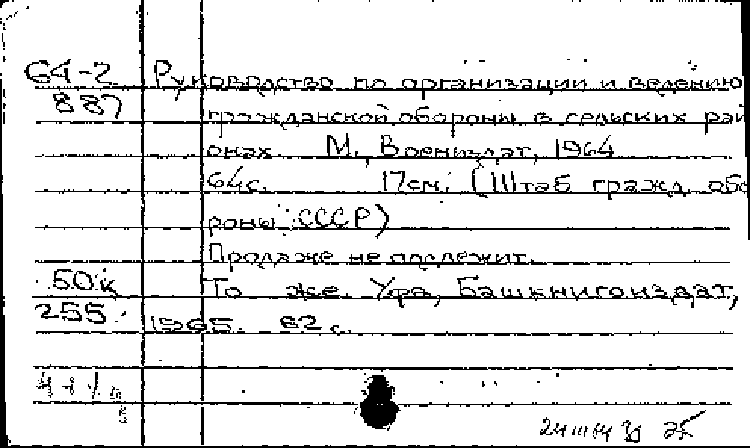 64-2 Руководство по организации и ведению
887 гражданской обороны в сельских рай
онах. М., Воениздат, 1964
64с. 17см. (Штаб гражд. обо
роны СССР)
Продаже не подлежит.
50к То же. Уфа, Башкнигоиздат,
255. 1965. 82 с.